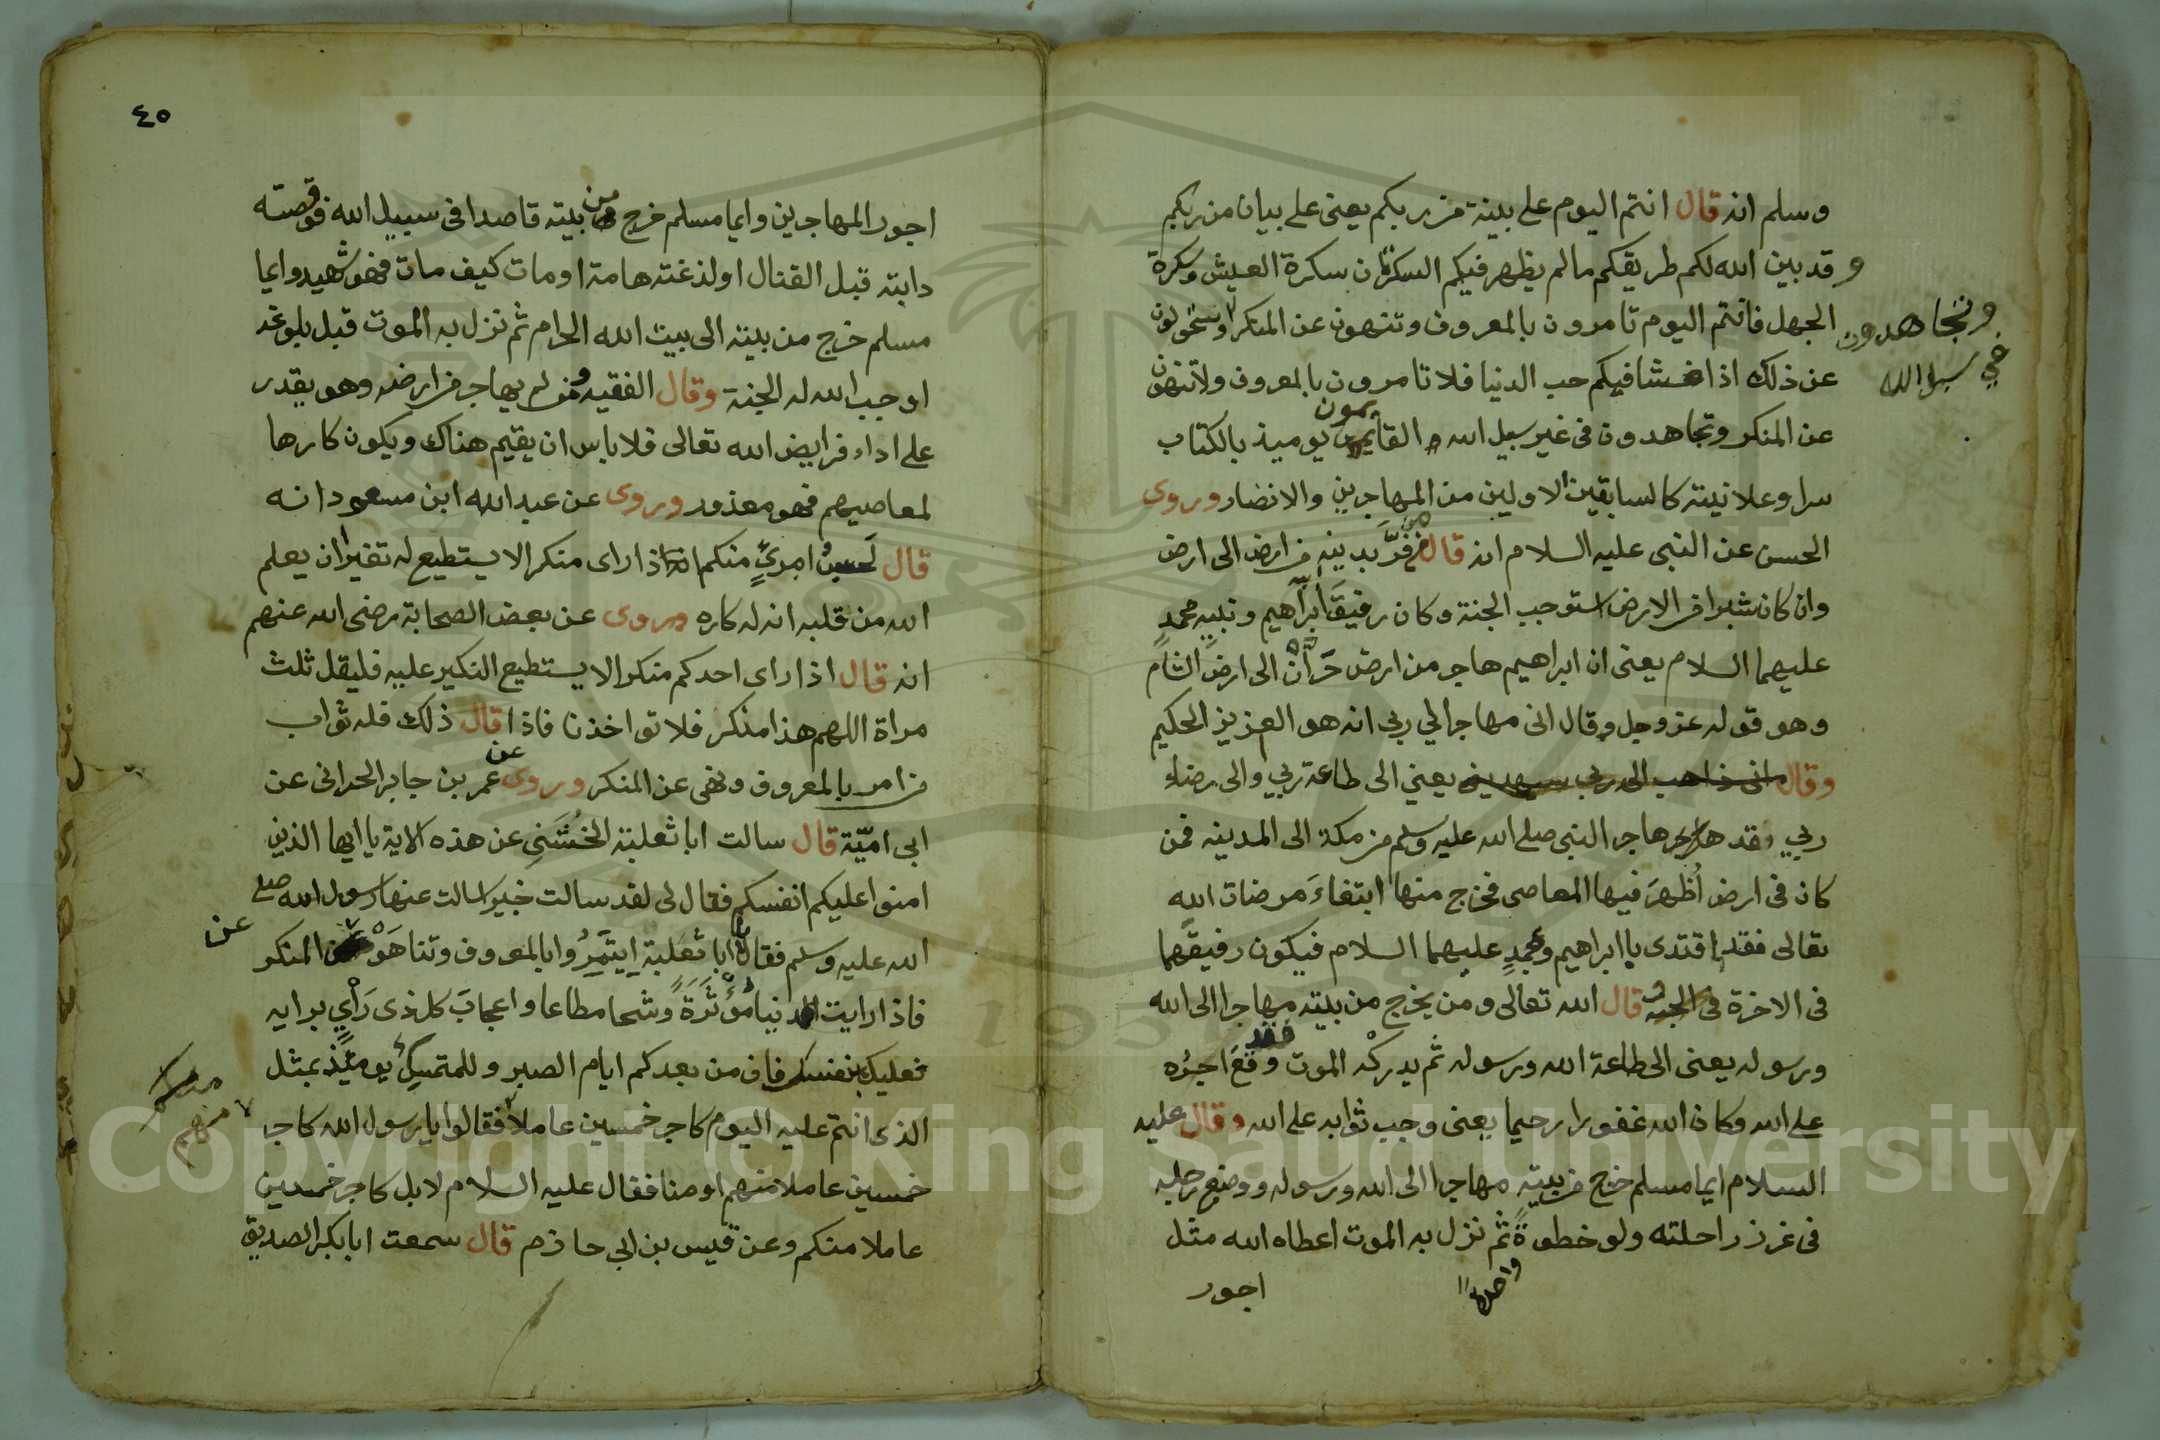 وسلم انه قال انتم اليوم على بينة من ربكم يعنى على بيان من ربكم
و قد بين الله لكم طريقكم مالم يظهر فيكم السكرتان سكرة العيش وسكرة
الجهل فانتم اليوم تامرون بالمعروف وتنهون عن المنكر وستحولون
وتجاهدون
في سبيل الله
عن ذلك اذا فشا فيكم حب الدنيا فلا تامرون بالمعروف ولا تنهون
عن المنكر وتجاهدون فى غير سبيل الله القايمون يوميذ بالكتاب
سرا وعلانية كالسابقين الاولين من المهاجرين والانصار وروى
الحسن عن النبى عليه السلام انه قال من فرّ بدينه من ارض الى ارض
وان كان شبرا من الارض استوجب الجنة وكان رفيق ابراهيم ونبيه محمد
عليهما السلام يعنى ان ابراهيم هاجر من ارض حران الى ارض الشام
وهو قوله عز وجل وقال انى مهاجر الي ربى انه هو العزيز الحكيم
وقال انى ذاهب الى ربى سيهدين يعني الى طاعة ربي والى رضاء
ربي وقد هاجر النبى صلى الله عليه وسلم من مكة الى المدينه فمن
كان فى ارض أظهر فيها المعاصى فخرج منها ابتغاء مرضات الله
تعالى فقد اقتدى بابراهيم ومحمد عليهما السلام فيكون رفيقهما
فى الاخرة فى الجنة قال الله تعالى ومن يخرج من بيته مهاجرا الى الله
ورسوله يعنى الى طاعة الله ورسوله ثم يدركه الموت فقد وقع اجره
على الله وكان الله غفورا رحيما يعنى وجب ثوابه على الله وقال عليه
السلام ايما مسلم خرج من بيته مهاجرا الى الله ورسوله ووضع رجله
فى غرز راحلته ولو خطوة ثم نزل به الموت اعطاه الله مثل
واحدة
اجور
٤٥
اجور المهاجرين وايما مسلم خرج من بيته قاصدا فى سبيل الله فوقصته
دابته قبل القتال اولذغته هامة اومات كيف مات فهو شهيد وايما
مسلم خرج من بيته الى بيت الله الحرام ثم نزل به الموت قبل بلوغه
اوجب الله له الجنة وقال الفقيه ومن لم يهاجر من ارضه وهو يقدر
على اداء فرايض الله تعالى فلا باس ان يقيم هناك ويكون كارها
لمعاصيهم فهو معذور وروى عن عبد الله ابن مسعود انه
قال لحسب امرئ منكم اذا راى منكرا لا يستطيع له تغيرا ان يعلم
الله من قلبه انه له كاره وروى عن بعض الصحابة رضى الله عنهم
انه قال اذا راى احدكم منكرا لا يستطيع النكير عليه فليقل ثلث
مراة اللهم هذا منكر فلا تواخذنا فاذا قال ذلك فله ثواب
من امر بالمعروف ونهى عن المنكر وروى عن عمر بن جابر الحرانى عن
ابى اميّة قال سالت ابا ثعلبة الخشنى عن هذه الاية يا ايها الذين
امنوا عليكم انفسكم فقال لى لقد سالت خبيرا سالت عنها رسول الله صلى
الله عليه وسلم فقال يا ابا ثعلبة ايتمروا بالمعروف وتناهوا عن المنكر
عن
فاذا رايت الدنيا مؤثرة وشحا مطاعا واعجاب كل ذى رأي برايه
فعليك بنفسك فان من بعدكم ايام الصبر وللمتمسك يوميذ بمثل
الذى انتم عليه اليوم كاجر خمسين عاملا فقالوا يا رسول الله كاجر
منهم
خمسين عاملا منهم او منا فقال عليه السلام لا بل كاجر خمسين
عاملا منكم وعن قيس بن ابي حازم قال سمعت ابا بكر الصديق
Copyright © King Saud University
1957